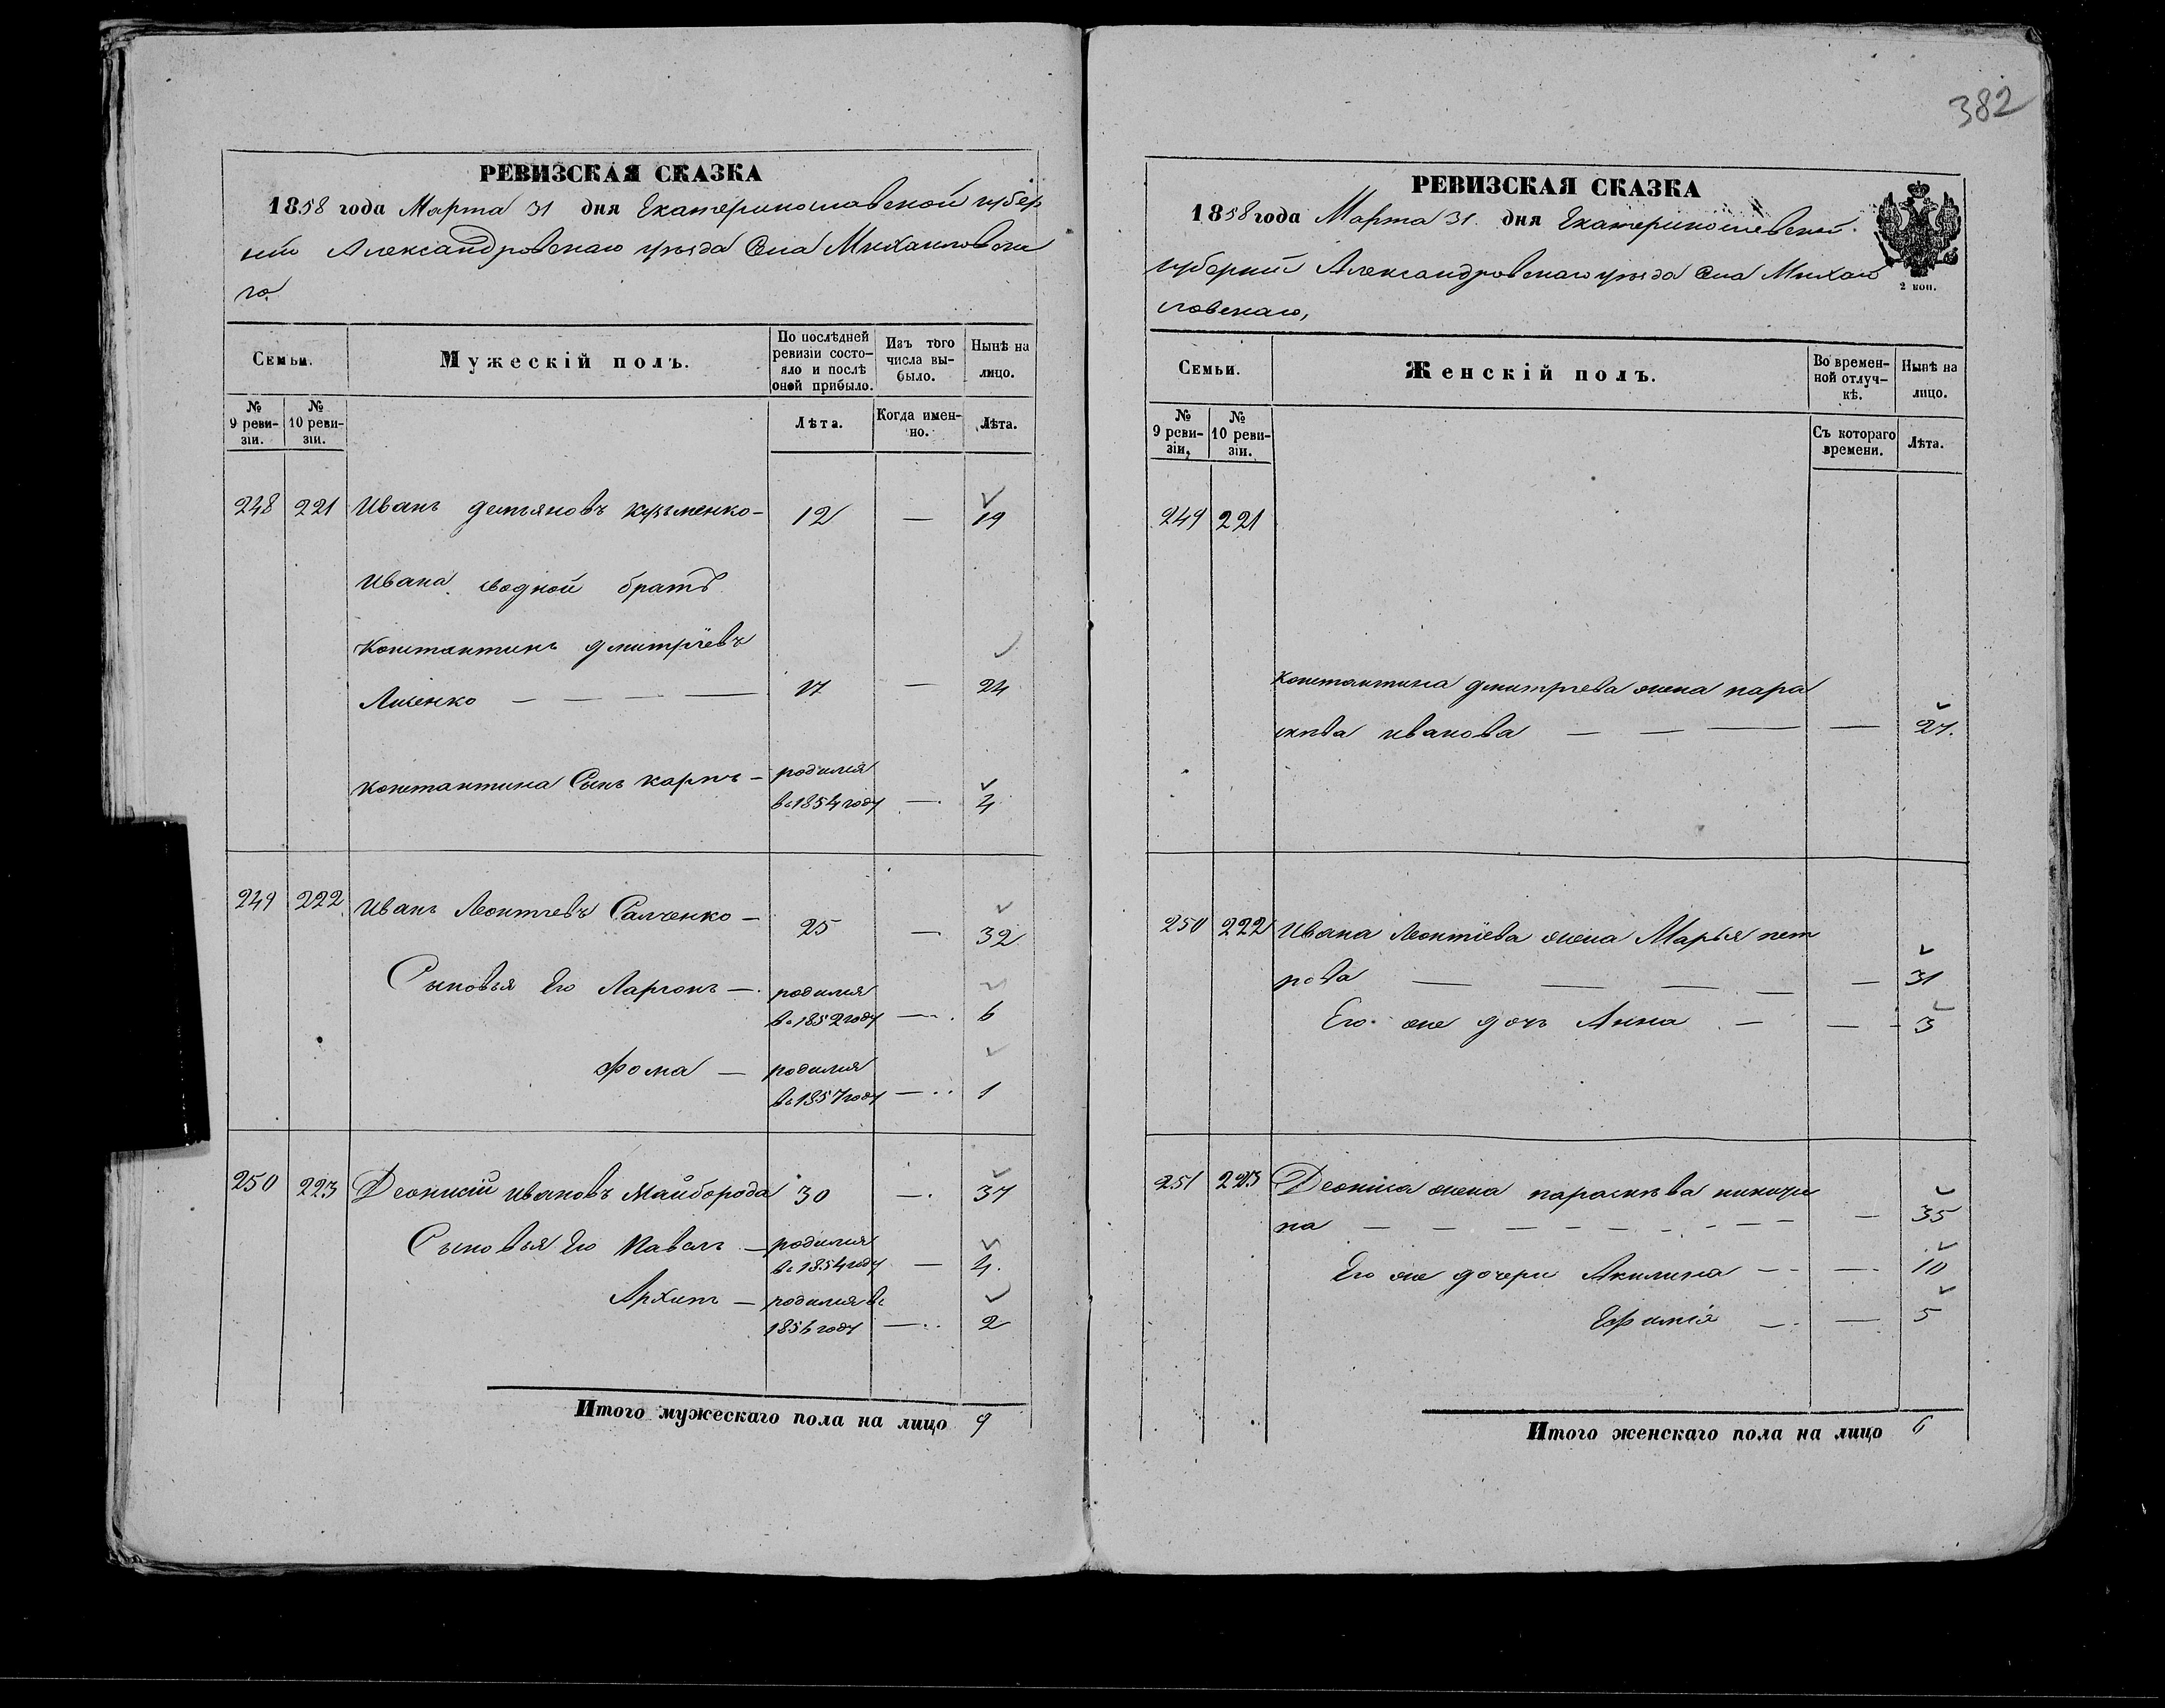 382
РЕВИЗСКАЯ СКАЗКА
1858 года Марта 31 дня Екатеринославской губер
нии Александровскаго уезда Села Михайловска
го.
Семьи.
Мужескій полъ.
По послѣдней ревизіи состояло и послѣ оной прибыло.
Изъ того числа выбыло.
Нынѣ на лицо.
№ 9 ревизіи.
№ 10 ревизіи.
Лѣта.
Когда именно.
Лѣта.
248 221 Иванъ демьяновъ кузьменко – 12 — 19
Ивана сводной братъ
Константинъ дмитріевъ
Лисенко — — — — 17 — 24
константина Сынъ карпъ – родился
въ 1854 году — 4
249 222 Иванъ Леонтьевъ Савченко – 25 — 32
Сыновья Его Ларіонъ – родился
въ 1852 году — 6
Фома — родился
въ 1857 году — 1
250 223 Деонисій ивановъ Майборода 30 — 37
Сыновья Его Павелъ – родился
въ 1854 году — 4.
Архипъ – родился въ
1856 году — 2
Итого мужескаго пола на лицо 9
РЕВИЗСКАЯ СКАЗКА
1858 года Марта 31. дня Екатеринославской
губерніи Александровскаго уезда Села Михай
ловскаго,
2 коп.
Семьи.
Женскій полъ.
Во временной отлучкѣ.
Нынѣ на лицо.
№ 9 ревизіи,
№ 10 ревизіи.
Съ котораго времени.
Лѣта.
249 221
константина дмитріева жена пара
скѣва иванова — — — — 27.
250 222 Ивана Леонтіева жена Марья пет
рова — — — — — 31
Его же дочь Анна — — 3
251 223 Деонісіа жена параскѣва никити
на — — — — — — — — 35
Его же дочери Акилина — — 10
Ефимія — — 5
Итого женскаго пола на лицо 6